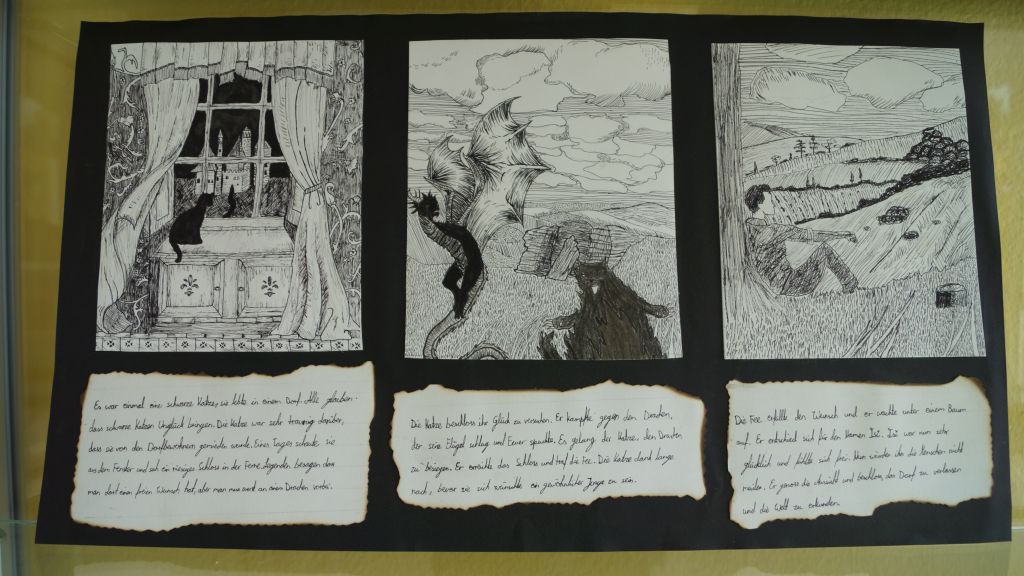 Es war einmal eine schwarze Katze, sie lebte in einem Dorf. Alle glaubten,
dass schwarze Katzen Unglück bringen. Die Katze war sehr traurig darüber,
dass sie von den Dorfbewohnern gemieden wurde. Eines Tages schaute sie
aus dem Fenster und sah ein riesiges Schloss in der Ferne. Legenden besagen, dass
man dort einen freien Wunsch hat, aber man muss zuerst an einem Drachen vorbei.
Die Katze beschloss ihr Glück zu versuchen. Er kämpfte gegen den Drachen,
der seine Flügel schlug und Feuer spuckte. Es gelang der Katze, den Drachen
zu besiegen. Er erreichte das Schloss und traf die Fee. Die Katze dachte lange
nach, bevor sie sich wünschte ein gewöhnlicher Junge zu sein.
Die Fee erfüllte den Wunsch und er wachte unter einem Baum
auf. Er entschied sich für den Namen war nun sehr
glücklich und fühlte sich frei. Nun würden die Menschen nicht
meiden. Er genoss die Aussicht und beschloss, das Dorf zu verlassen
und die Welt zu erkunden.